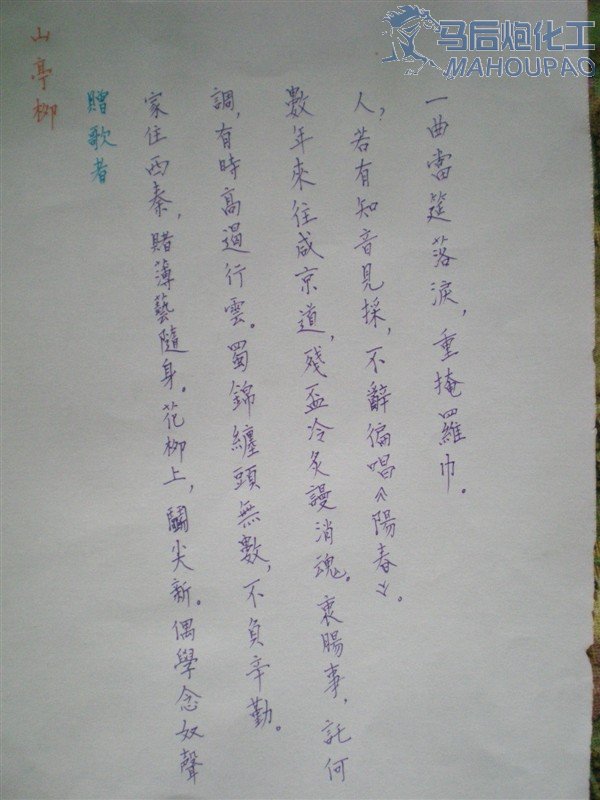 山亭柳
贈歌者
家住西秦，賭薄藝隨身。花柳上，鬭尖新。偶學念奴聲
調，有時高遏行雲。蜀錦纏頭無數，不負辛勤。
數年來往咸京道，殘盃冷炙謾消魂。衷腸事，託何
人，若有知音見採，不辭徧唱《陽春》。
一曲當筵落淚，重掩羅巾。
马后炮化工
MAHOUPAO